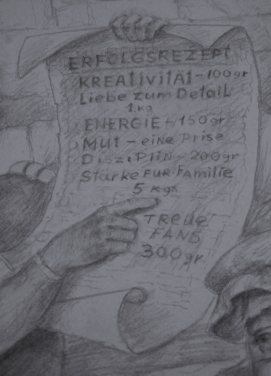 ERFOLGSREZEPT
KREATIVITÄT-100gr
Liebe zum Detail
1.kg
ENERGIE-150gr
Mut-eine Prise
DisziPliN-200gr
Stärke FÜR Familie
5 kgr
TReue
FAND
300gr